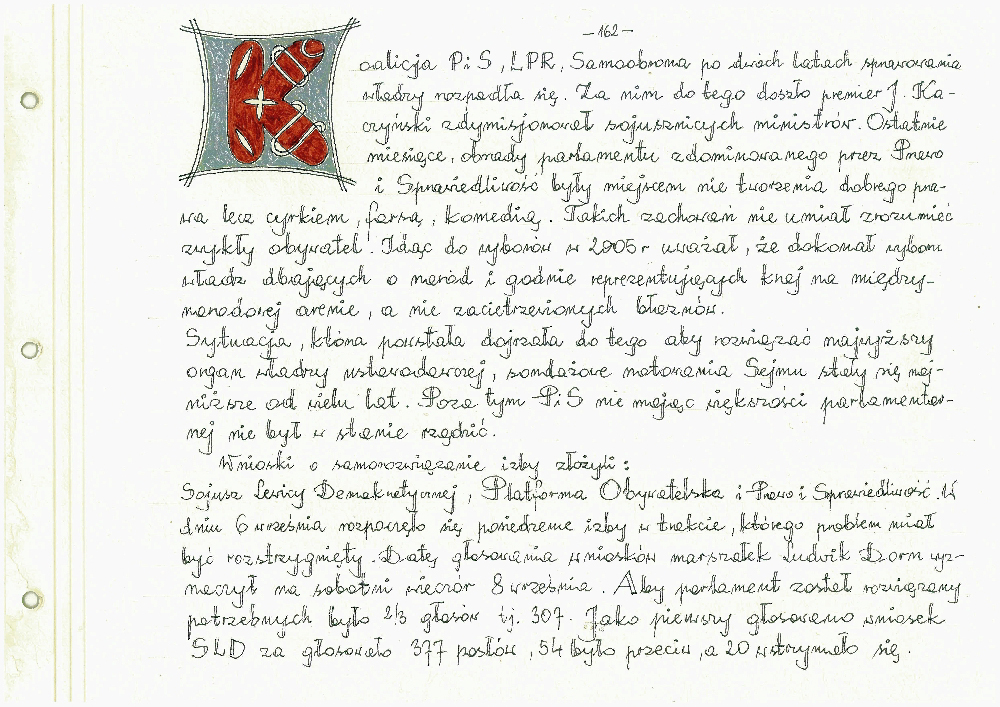 –162–
Koalicja PiS, LPR, Samoobrona po dwóch latach sprawowania
władzy rozpadła się. Za nim do tego doszło premier J. Ka-
czyński zdymisjonował sojuszniczych ministrów. Ostatnie
miesiące, obrady parlamentu zdominowanego przez Prawo
i Sprawiedliwość były miejscem nie tworzenia dobrego pra-
wa lecz cyrkiem, farsą, komedią. Takich zachowań nie umiał zrozumieć
zwykły obywatel. Idąc do wyborów w 2005r uważał, że dokonał wyboru
władz dbających o naród i godnie reprezentujących kraj na między-
narodowej arenie, a nie zacietrzewionych błaznów.
Sytuacja, która powstała dojrzała do tego aby rozwiązać najwyższy
organ władzy ustawodawczej, sondażowe notowania Sejmu stały się naj-
niższe od wielu lat. Poza tym PiS nie mając większości parlamentar-
nej nie był w stanie rządzić.
Wnioski o samorozwiązanie izby złożyli:
Sojusz Lewicy Demokratycznej, Platforma Obywatelska i Prawo i Sprawiedliwość. W
dniu 6 września rozpoczęło się posiedzenie izby w trakcie, którego problem miał
być rozstrzygnięty. Datę głosowania wniosków marszałek Ludwik Dorn wyz-
naczył na sobotni wieczór 8 września. Aby parlament został rozwiązany
potrzebnych było 2/3 głosów tj. 307. Jako pierwszy głosowano wniosek
SLD za głosowało 377 posłów, 54 było przeciw, a 20 wstrzymało się.